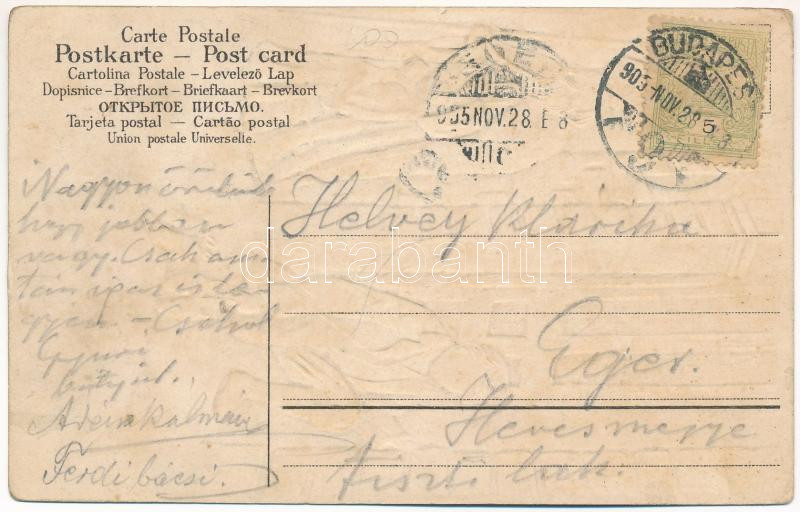 Carte Postale
Postkarte — Post card
Cartolina Postale – Levelező Lap
Dopisnice – Brefkort – Briefkaart – Brevkort
ОТКРЫТОЕ ПИСЬМО.
Tarjeta postal — Cartão postal
Union postale Universelle.
905 NOV. 28. E 8
BUDAPEST
905 NOV. 28
5
Nagyon örülünk
hogy jobban
vagy. Csak
igaz is le
gyen. – Csókol
Gyuri
bátyád.
Kálmán
Ferdi bácsi.
Helvey Klárika
Eger.
Hevesmegye
Tiszti lak.
darabanth